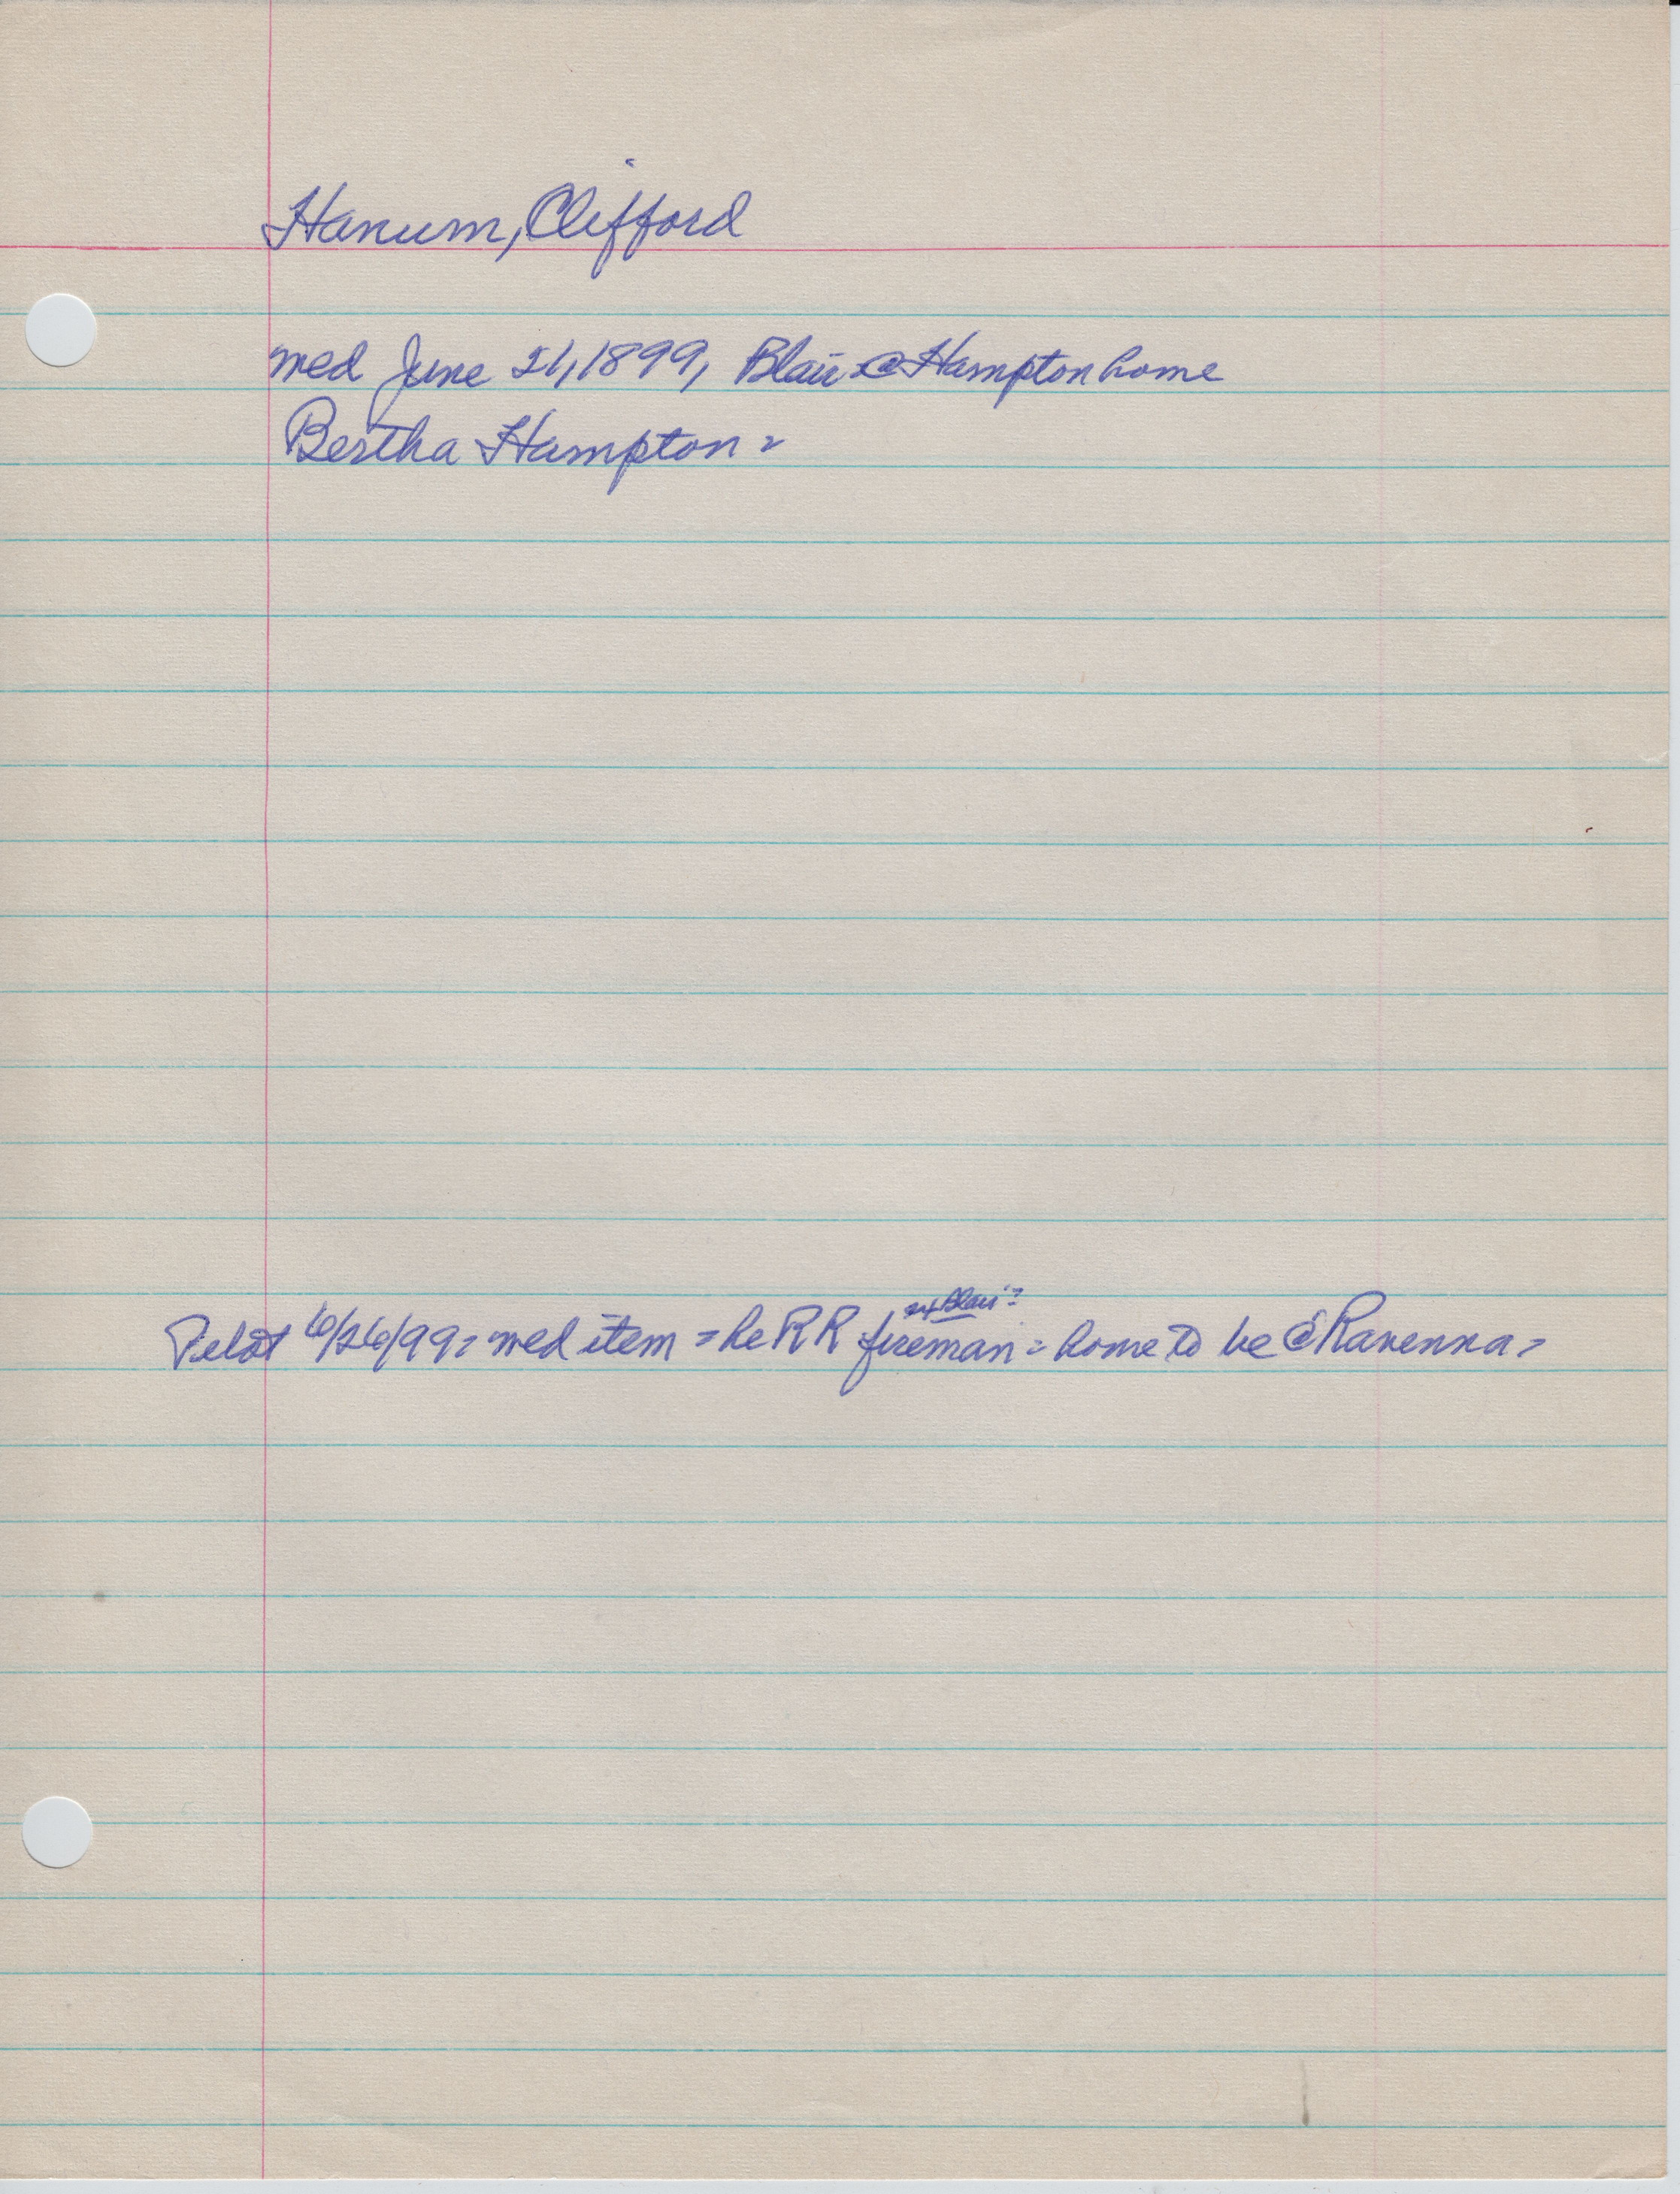 Hanum, Clifford
wed June 21, 1899, Blair @ Hampton home
Bertha Hampton =
Blair =
Pilot 6/26/99 = wed item = he RR fireman = home to be @ Ravenna =